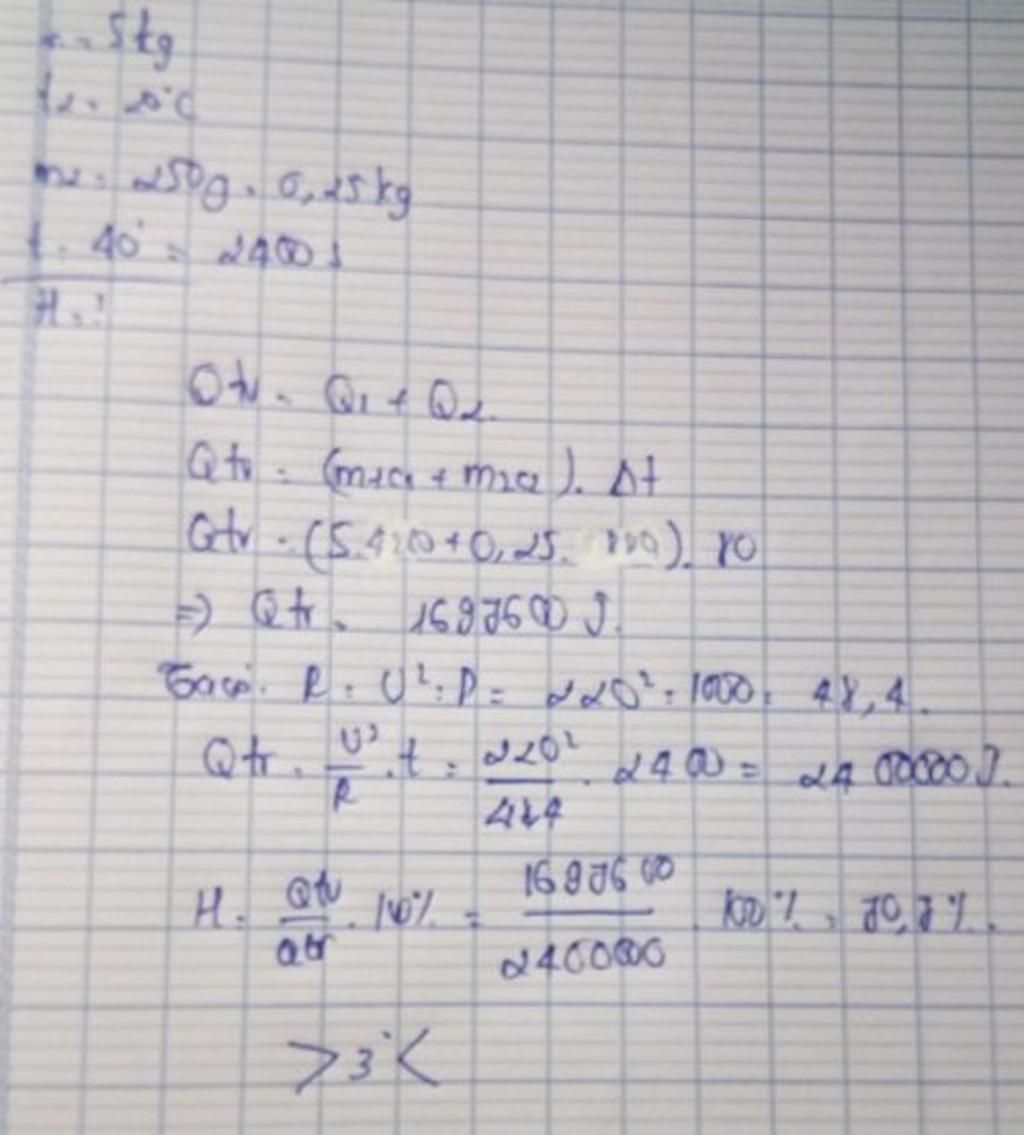 = 5kg
t₁ = 20°C
m₂ = 250g = 0,25kg
t = 40' = 2400s
H = ?
Qtv = Q₁ + Q₂
Qtv = (m₁c₁ + m₂c₂). Δt
Qtv = (5.4200 + 0,25. 880). 80
=> Qtv = 1697600 J.
R = U² : P = 220² : 1000 = 48,4.
Qtr = U²/R . t = 220²/484 . 2400 = 2400000J.
H = Qtv/Qtr . 100% = 1697600/2400000 . 100% = 70,7%.
>3<